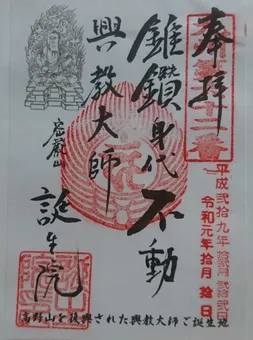 奉拝
錐鑽身代不動
興教大師
密嚴山
誕生院
平成弐拾九年拾弐月弐拾弐
令和元年拾月拾日
高野山を復興された興教大師ご誕生地